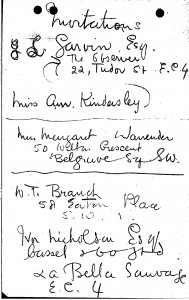 Invitations
J L Garvin Esq.
The Observer
22, Tudor St. E.C.4
Miss Ann Kindersley
Miss Margaret Warrender
50 Wilton Crescent
Belgrave Sq SW.
W.T. Branch
58 Eaton Place
S.W. 1
Ivor Nicholson Esq
Cassel & Co
La Bella Sauvage
E.C. 4